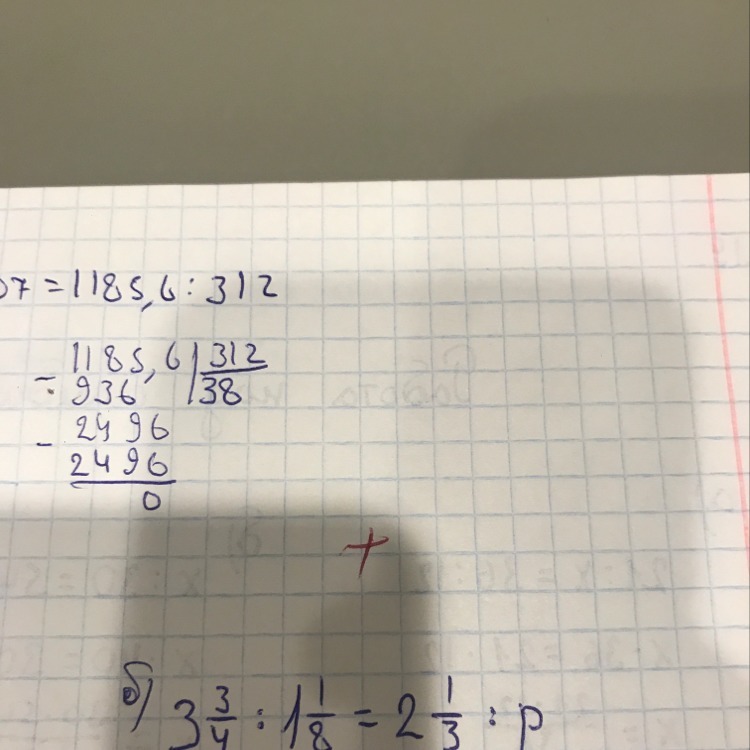 07 = 1185,6 : 312
- 1185,6 | 312
936 | 38
- 2496
2496
0
+
б) 3 3/4 : 1 1/8 = 2 1/3 : p